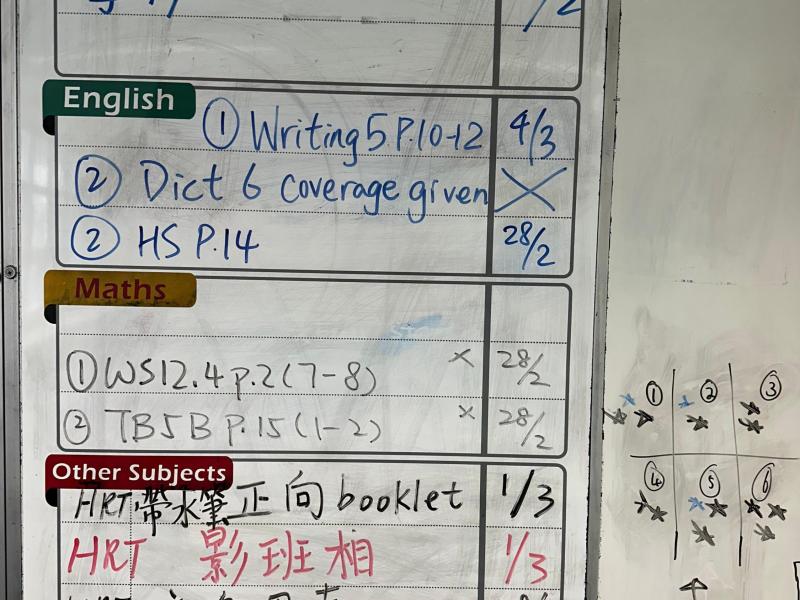 English
① Writing 5 P.10-12 4/3
② Dict 6 coverage given X
② HS P.14 28/2
Maths
① WS12.4 p.2 (7-8) x 28/2
② TB5B P.15 (1-2) x 28/2
Other Subjects
HRT 帶水筆 正向 booklet 1/3
HRT 影班相 1/3
① ② ③
④ ⑤ ⑥